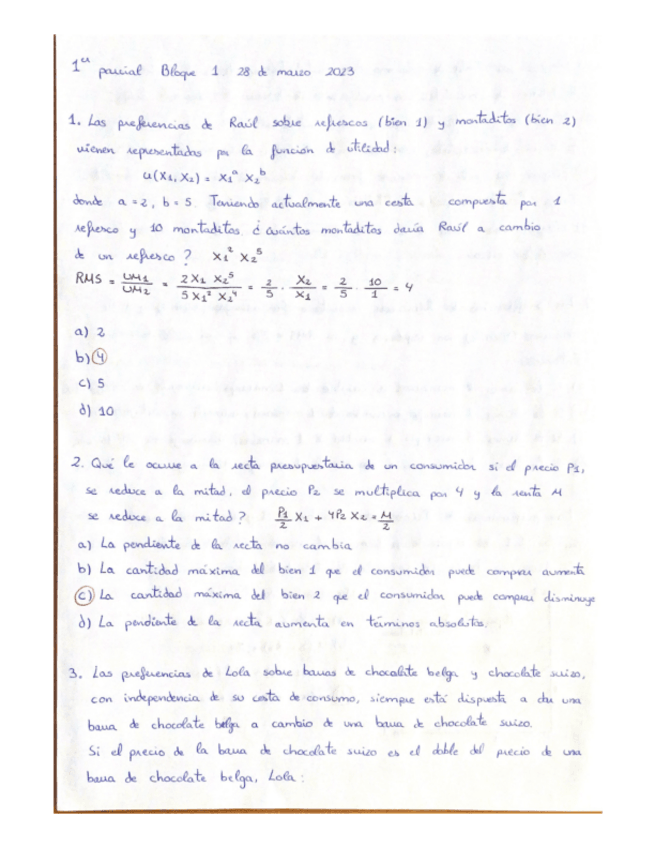 1ª parcial Bloque 1 28 de marzo 2023
1. Las preferencias de Raúl sobre refrescos (bien 1) y montaditos (bien 2)
vienen representadas por la función de utilidad:
u(X1, X2) = X1^a X2^b
donde a = 2, b = 5. Teniendo actualmente una cesta compuesta por 1
refresco y 10 montaditos ¿cuántos montaditos daría Raúl a cambio
de un refresco? X1² X2⁵
RMS = UM1/UM2 = 2X1 X2⁵ / 5X1² X2⁴ = 2/5 · X2/X1 = 2/5 · 10/1 = 4
a) 2
b) 4
c) 5
d) 10
2. Qué le ocurre a la recta presupuestaria de un consumidor si el precio P1,
se reduce a la mitad, el precio P2 se multiplica por 4 y la renta M
se reduce a la mitad? P1/2 X1 + 4P2 X2 = M/2
a) La pendiente de la recta no cambia
b) La cantidad máxima del bien 1 que el consumidor puede comprar aumenta
c) La cantidad máxima del bien 2 que el consumidor puede comprar disminuye
d) La pendiente de la recta aumenta en términos absolutos.
3. Las preferencias de Lola sobre barras de chocolate belga y chocolate suizo,
con independencia de su cesta de consumo, siempre está dispuesta a dar una
barra de chocolate belga a cambio de una barra de chocolate suizo.
Si el precio de la barra de chocolate suizo es el doble del precio de una
barra de chocolate belga, Lola: